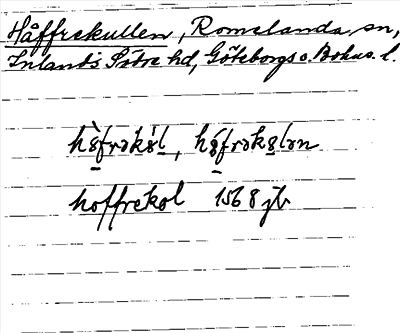 Håffrekullen, Romelanda sn,
Inlands Södre hd, Göteborgs o. Bohus l.
hoffrekol 1568 jb